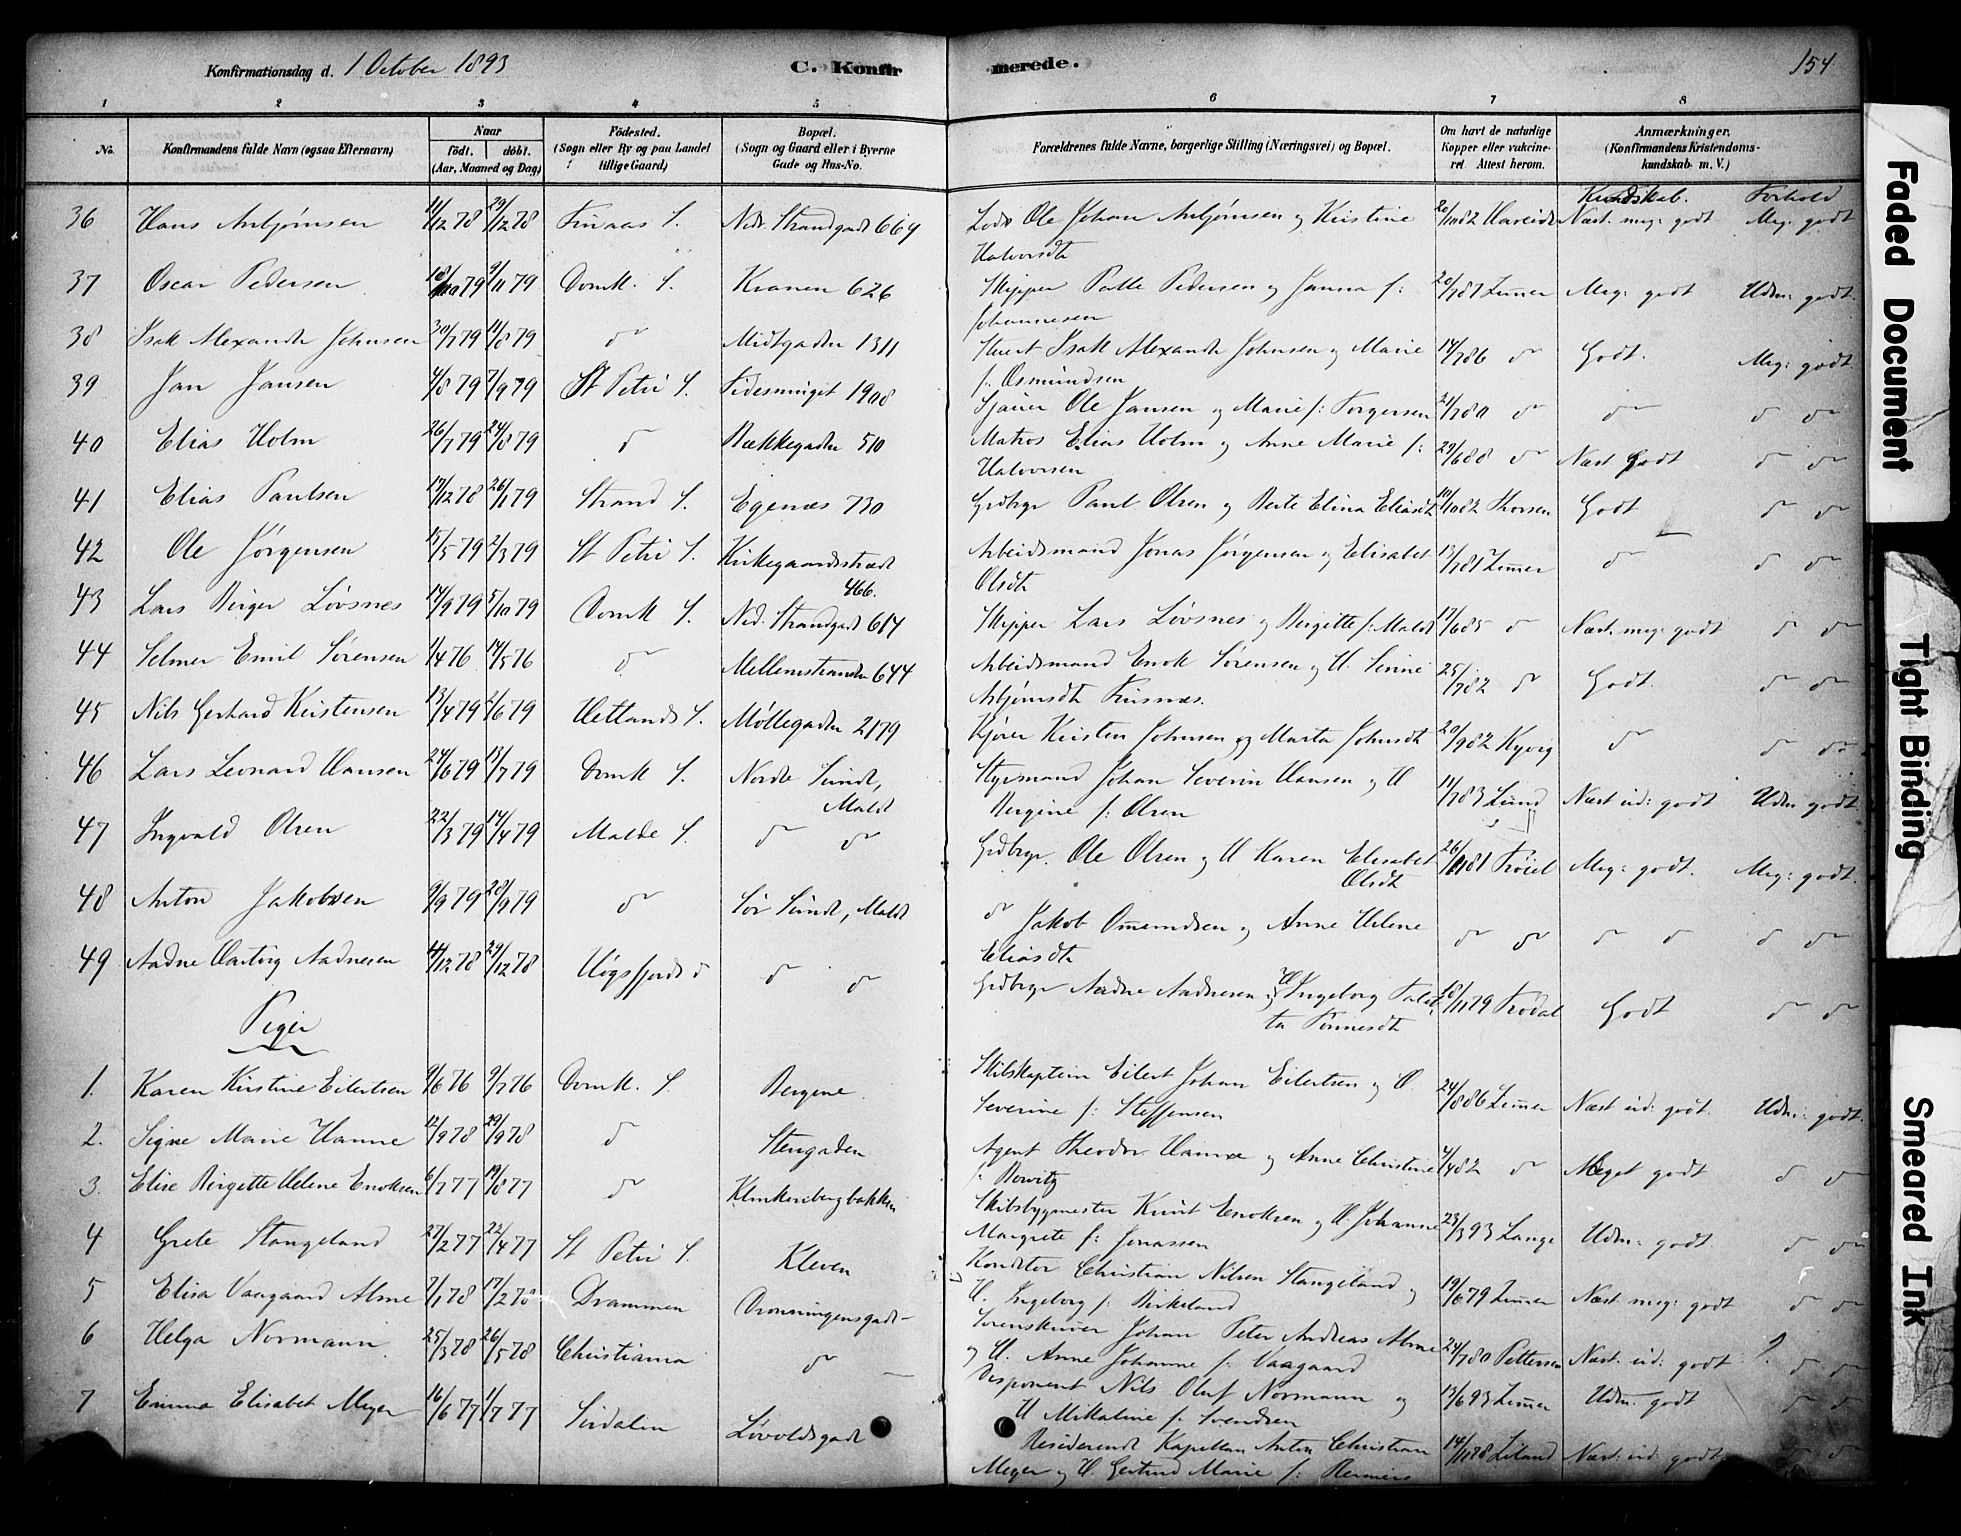 Konfirmationsdag d. 1 October 1893
C. Konfirmerede.
154
1 2 3 4 5 6 7 8
No.
Konfirmandens fulde Navn (ogsaa Efternavn)
Naar
født. døbt.
(Aar, Maaned og Dag)
Fødested.
(Sogn eller By og paa Landet tillige Gaard)
Bopæl.
(Sogn og Gaard eller i Byerne Gade og Hus-No.
Forældrenes fulde Navne, borgerlige Stilling (Næringsvei) og Bopæl.
Om havt de naturlige Kopper eller vakcineret. Attest herom.
Anmærkninger.
(Konfirmandens Kristendomskundskab m. V.)
Kundskab. Forhold
36 Hans Asbjørnsen 11/12 78 29/12 78 Nedr. Strandgade 664 Lods Ole Johan Asbjørnsen og Kristine Halvorsdt Næst. meg: godt Meg: godt
37 Oscar Pedersen 79 9/11 79 Domk. S. Kranen 626 Skipper Palle Pedersen og Janna f: Johannesen 20/7 81 Zimmer Meg: godt Udm: godt.
38 Isak Alexander Johnsen 30/7 79 79 do Midtgaden 1311 Stuert Isak Alexander Johnsen og Marie f: Osmundsen 14/7 86 do Godt. Meg: godt.
39 Jan Jansen 4/8 79 7/9 79 St Petri S. Fidesminget 1908 Sjauer Ole Jansen og Marie f: Torgersen 21/7 80 do do do do
40 Elias Holm 26/7 79 24/8 79 do Bækkegaden 510 Matros Elias Holm og Anne Marie f: Halvorsen 29/6 88 do Næst. godt do do
41 Elias Paulsen 17/12 78 26/1 79 Strand S. Egenæs 730 Grdbrgr Paul Olsen og Berte Elina Eliasdt 10/10 82 Thorsen Godt do do
42 Ole Jørgensen 79 79 St Petri S. Kirkegaardsstrædt 466. Arbeidsmand Jonas Jørgensen og Elisabet Olsdt 13/7 81 Zimmer do do do
43 Lars Birger Løvsnes 14/9 79 5/10 79 Domk S. Ned. Strandgade 617 Skipper Lars Løvsnes og Bergitte f: Malde 17/6 85 do Næst. meg: godt do do
44 Selmer Emil Sørensen 1/4 76 14/5 76 do Mellemstranden 644 Arbeidsmand Enok Sørensen og H. Serine Asbjørnsdt 25/7 82 do Godt. do do
45 Nils Gerhard Kristensen 13/4 79 2/6 79 Hetlands S. Møllegaden 2179 Kjører Kristen Johnsen og Marta Johnsdt 20/9 82 Kyvig do do do
46 Lars Leonard Hansen 24/6 79 13/7 79 Domk S. Nordre Sunde, Malde Styrmand Johan Severin Hansen og H Bergine f: Olsen 11/7 83 Lund Næst ud: godt Udm godt
47 Ingvald Olsen 22/3 79 14/4 79 Malde S. do do Grdbrgr. Ole Olsen og H Karen Elisabet Olsdt 81 Meg: godt. Meg: godt.
48 Anton Jakobsen 9/9 79 28/9 79 do Sør Sunde, Malde do Jakob Omundsen og Anne Helene Eliasdt do do do do do do
49 Aadne Hartvig Aadnesen 78 29/12 78 Høgsfjords do do do Grdbrgr Aadne Aadnesen og H Ingeborg Tønnesdt 79 Godt do do
Piger
1. Karen Kirstine Eilertsen 9/6 76 9/7 76 Domk. S. Bergene Skibskaptein Eilert Johan Eilertsen og H. Severine f: Steffensen 24/8 86 Zimmer Næst ud: godt. Udm: godt.
2. Signe Marie Hanne 12/9 78 29/9 78 do Stengaden Agent Theodor Hanne og Anne Christine f: Rowitz 4/4 82 do Meget godt do do
3. Elise Birgitte Helene Enoksen 6/7 77 19/8 77 do Klinkenbergbakken Skibsbygmester Knut Enoksen og H. Johanne Margrete f: Jonassen 23/3 93 Lange Udm: godt. do do
4 Grete Stangeland 27/2 77 22/4 77 St Petri S. Kleven Konditor Christian Nilsen Stangeland og H. Ingeborg f: Birkeland 19/6 79 Zimmer Næst. meg: godt do do
5 Elisa Vaagaard Alme 7/1 78 17/2 78 Drammen Dronningensgade Sorenskriver Johan Peter Andreas Alme og H. Anne Johanne f: Vaagaard 24/7 80 Pettersen Næst. ud: godt ? do do
6 Helga Normann 25/3 78 26/5 78 Christiania do Disponent Nils Oluf Normann og H Mikaline f: Svendsen 13/6 93 Zimmer Udm: godt do do
7 Emma Elisabet Meyer 16/6 77 1/7 77 Sirdalen Løvoldsgade Residerende Kapellan Anton Christian Meyer og H. Gertrud Marie f: Reimers 14/11 78 Liland Næst: ud: godt do do
Faded Document
Tight Binding
Smeared Ink